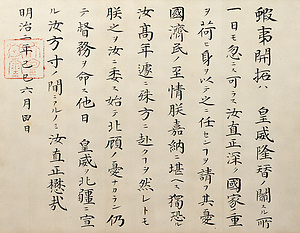 蝦夷開拓ハ　皇威隆替ノ關スル所
一日モ忽ニス可ラス汝直正深ク國家ノ重
ヲ荷ヒ身ヲ以テ之ニ任センコヲ請フ其憂
國濟民ノ至情朕嘉納ニ堪ヘス獨恐
汝高年遽ニ殊方ニ赴クコヲ然レトモ
朕之ヲ汝ニ委ス始テ北顧ノ憂ナカラン仍
テ督務ヲ命ス他日　皇威ヲ北疆ニ宣
ル汝方寸ノ間ニアルノミ汝直正懋哉
明治二年己巳六月四日